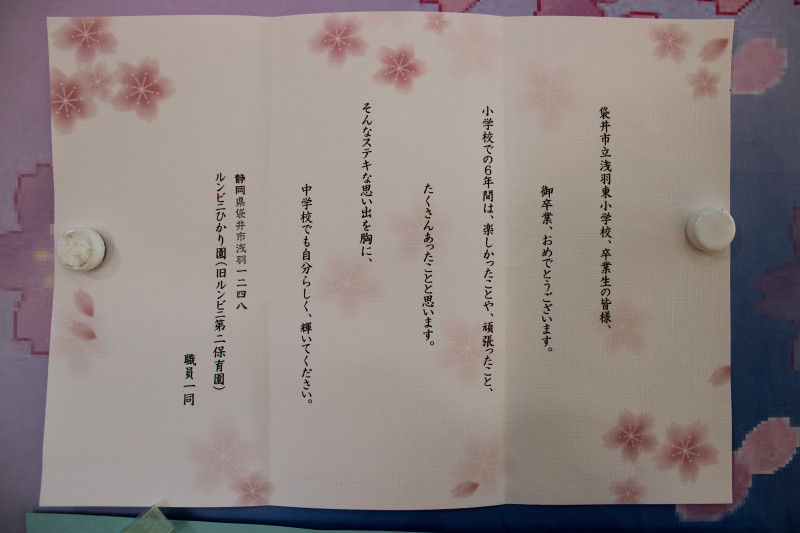 袋井市立浅羽東小学校、卒業生の皆様、
御卒業、おめでとうございます。
小学校での6年間は、楽しかったことや、頑張ったこと、
たくさんあったことと思います。
そんなステキな思い出を胸に、
中学校でも自分らしく、輝いてください。
静岡県袋井市浅羽一二四八
ルンビニひかり園(旧ルンビニ第二保育園)
職員一同